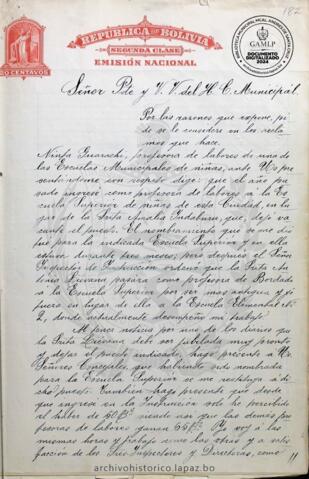 182
REPÚBLICA DE BOLIVIA
SEGUNDA CLASE
EMISIÓN NACIONAL
20 CENTAVOS
GAMLP
DOCUMENTO
DIGITALIZADO
2024
Señor Pde y V. V. del H. C. Municipal.
Por las razones que expone, pi
de se le considere en los recla
mos que hace.
Ninfa Guarachi, profesora de labores de una de
las Escuelas Municipales de niñas, ante Us. pre
sentándome con respeto digo: que el año pa
sado ingresé como profesora de labores a la Es
cuela Superior de niñas de esta Ciudad, en lu
gar de la Srita Amalia Indaburu, que, dejó va
cante el puesto. El nombramiento que se me dió
fué para la indicada Escuela Superior y en ella
estuve durante tres meses; pero después el Señor
Inspector de Instrucción ordenó que la Srita An
tonia Liévana pasara como profesora de Bordado
a la Escuela Superior por ser mas antigua y yo
fuera en lugar de ella a la Escuela Elemental No.
2, donde actualmente desempeño mi trabajo.
Al tener noticia por uno de los diarios que
la Srita Liévana debe ser jubilada muy pronto
y dejar el puesto indicado, hago presente a Us.
Señores Concejales, que habiendo sido nombrada
para la Escuela Superior se me restituya a di
cho puesto. También hago presente que desde
que ingresé a la Instrucción solo he percibido
el haber de 60 Bs. siendo así que las demás pro
fesoras de labores ganan 65 Bs. Yo voy á las
mismas horas y trabajo como las otras y a satis
facción de los Srs. Inspectores y Directoras, como
archivohistorico.lapaz.bo